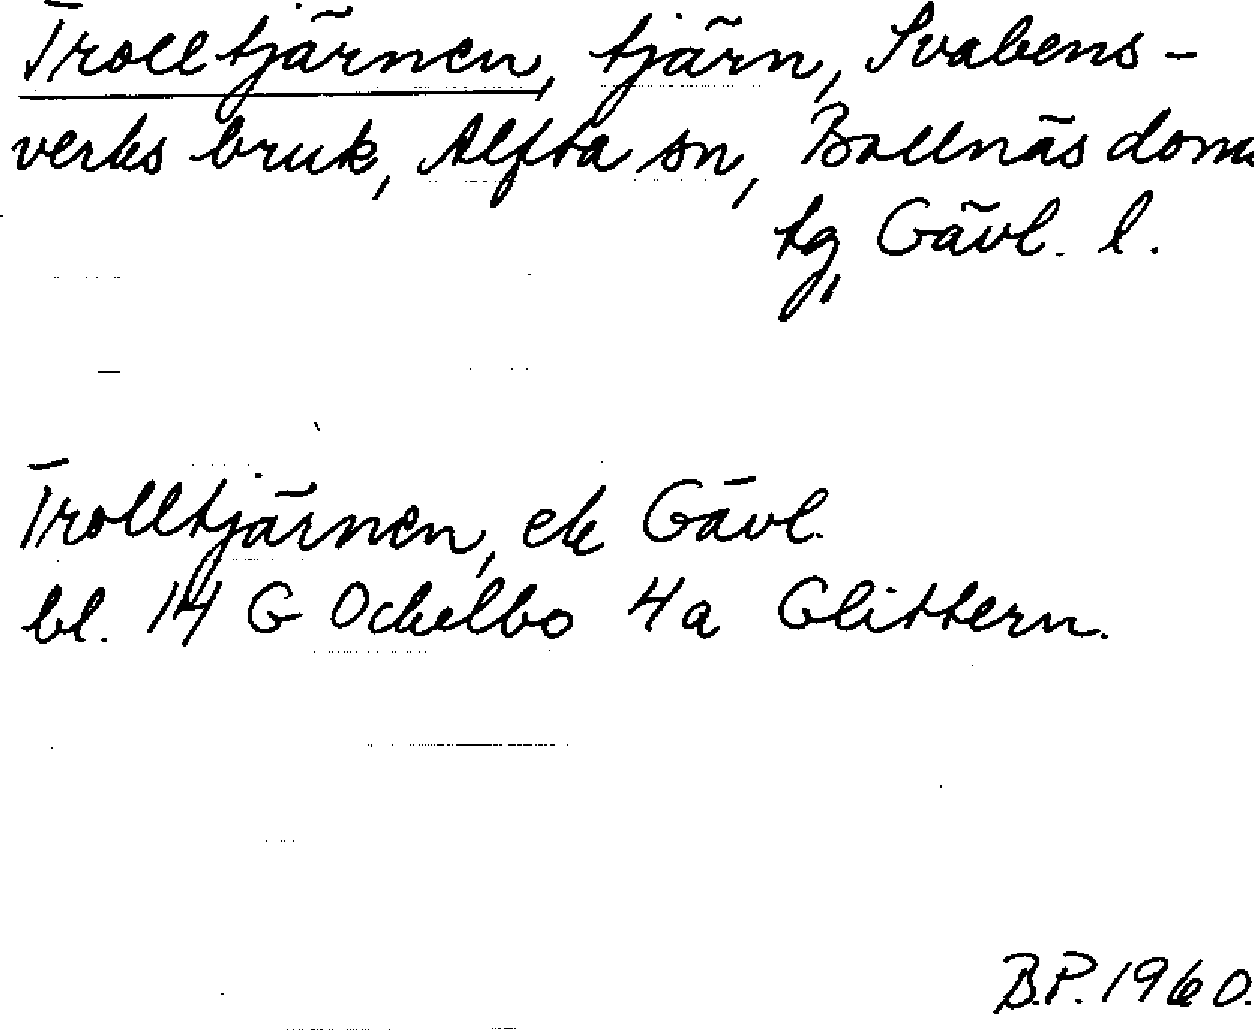 Trolltjärnen, tjärn, Svabens-
verks bruk, Alfta sn, Bollnäs doms
tg, Gävl. l.
Trolltjärnen, ek Gävl.
bl. 14 G Ockelbo 4a Glittern.
B.P. 1960.